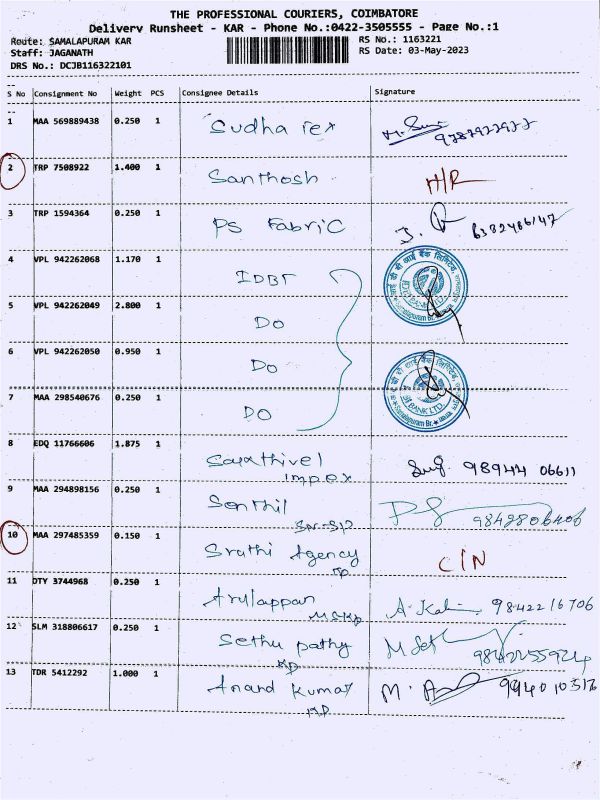 THE PROFESSIONAL COURIERS, COIMBATORE
Delivery Runsheet - KAR - Phone No.:0422-3505555 - Page No.:1
Route: SAMALAPURAM KAR RS No.: 1163221
Staff: JAGANATH RS Date: 03-May-2023
DRS No.: DCJB116322101
S No Consignment No Weight PCS Consignee Details Signature
1 MAA 569889438 0.250 1 Sudha Tex
2 TRP 7508922 1.400 1 Santhosh
3 TRP 1594364 0.250 1 PS Fabric
4 VPL 942262068 1.170 1 IDBI
5 VPL 942262049 2.800 1 DO
6 VPL 942262050 0.950 1 DO
7 MAA 298540676 0.250 1 DO
BANK LTD.
Samalapuram Br.
8 EDQ 11766606 1.875 1 Sarathivel 98944 06611
Impex
9 MAA 294898156 0.250 1 Senthil
10 MAA 297485359 0.150 1 Sruthi Agency C/N
11 DTY 3744968 0.250 1 Arulappan 98422 16706
12 SLM 318806617 0.250 1 Sethu pathy
13 TDR 5412292 1.000 1 Anand Kumar